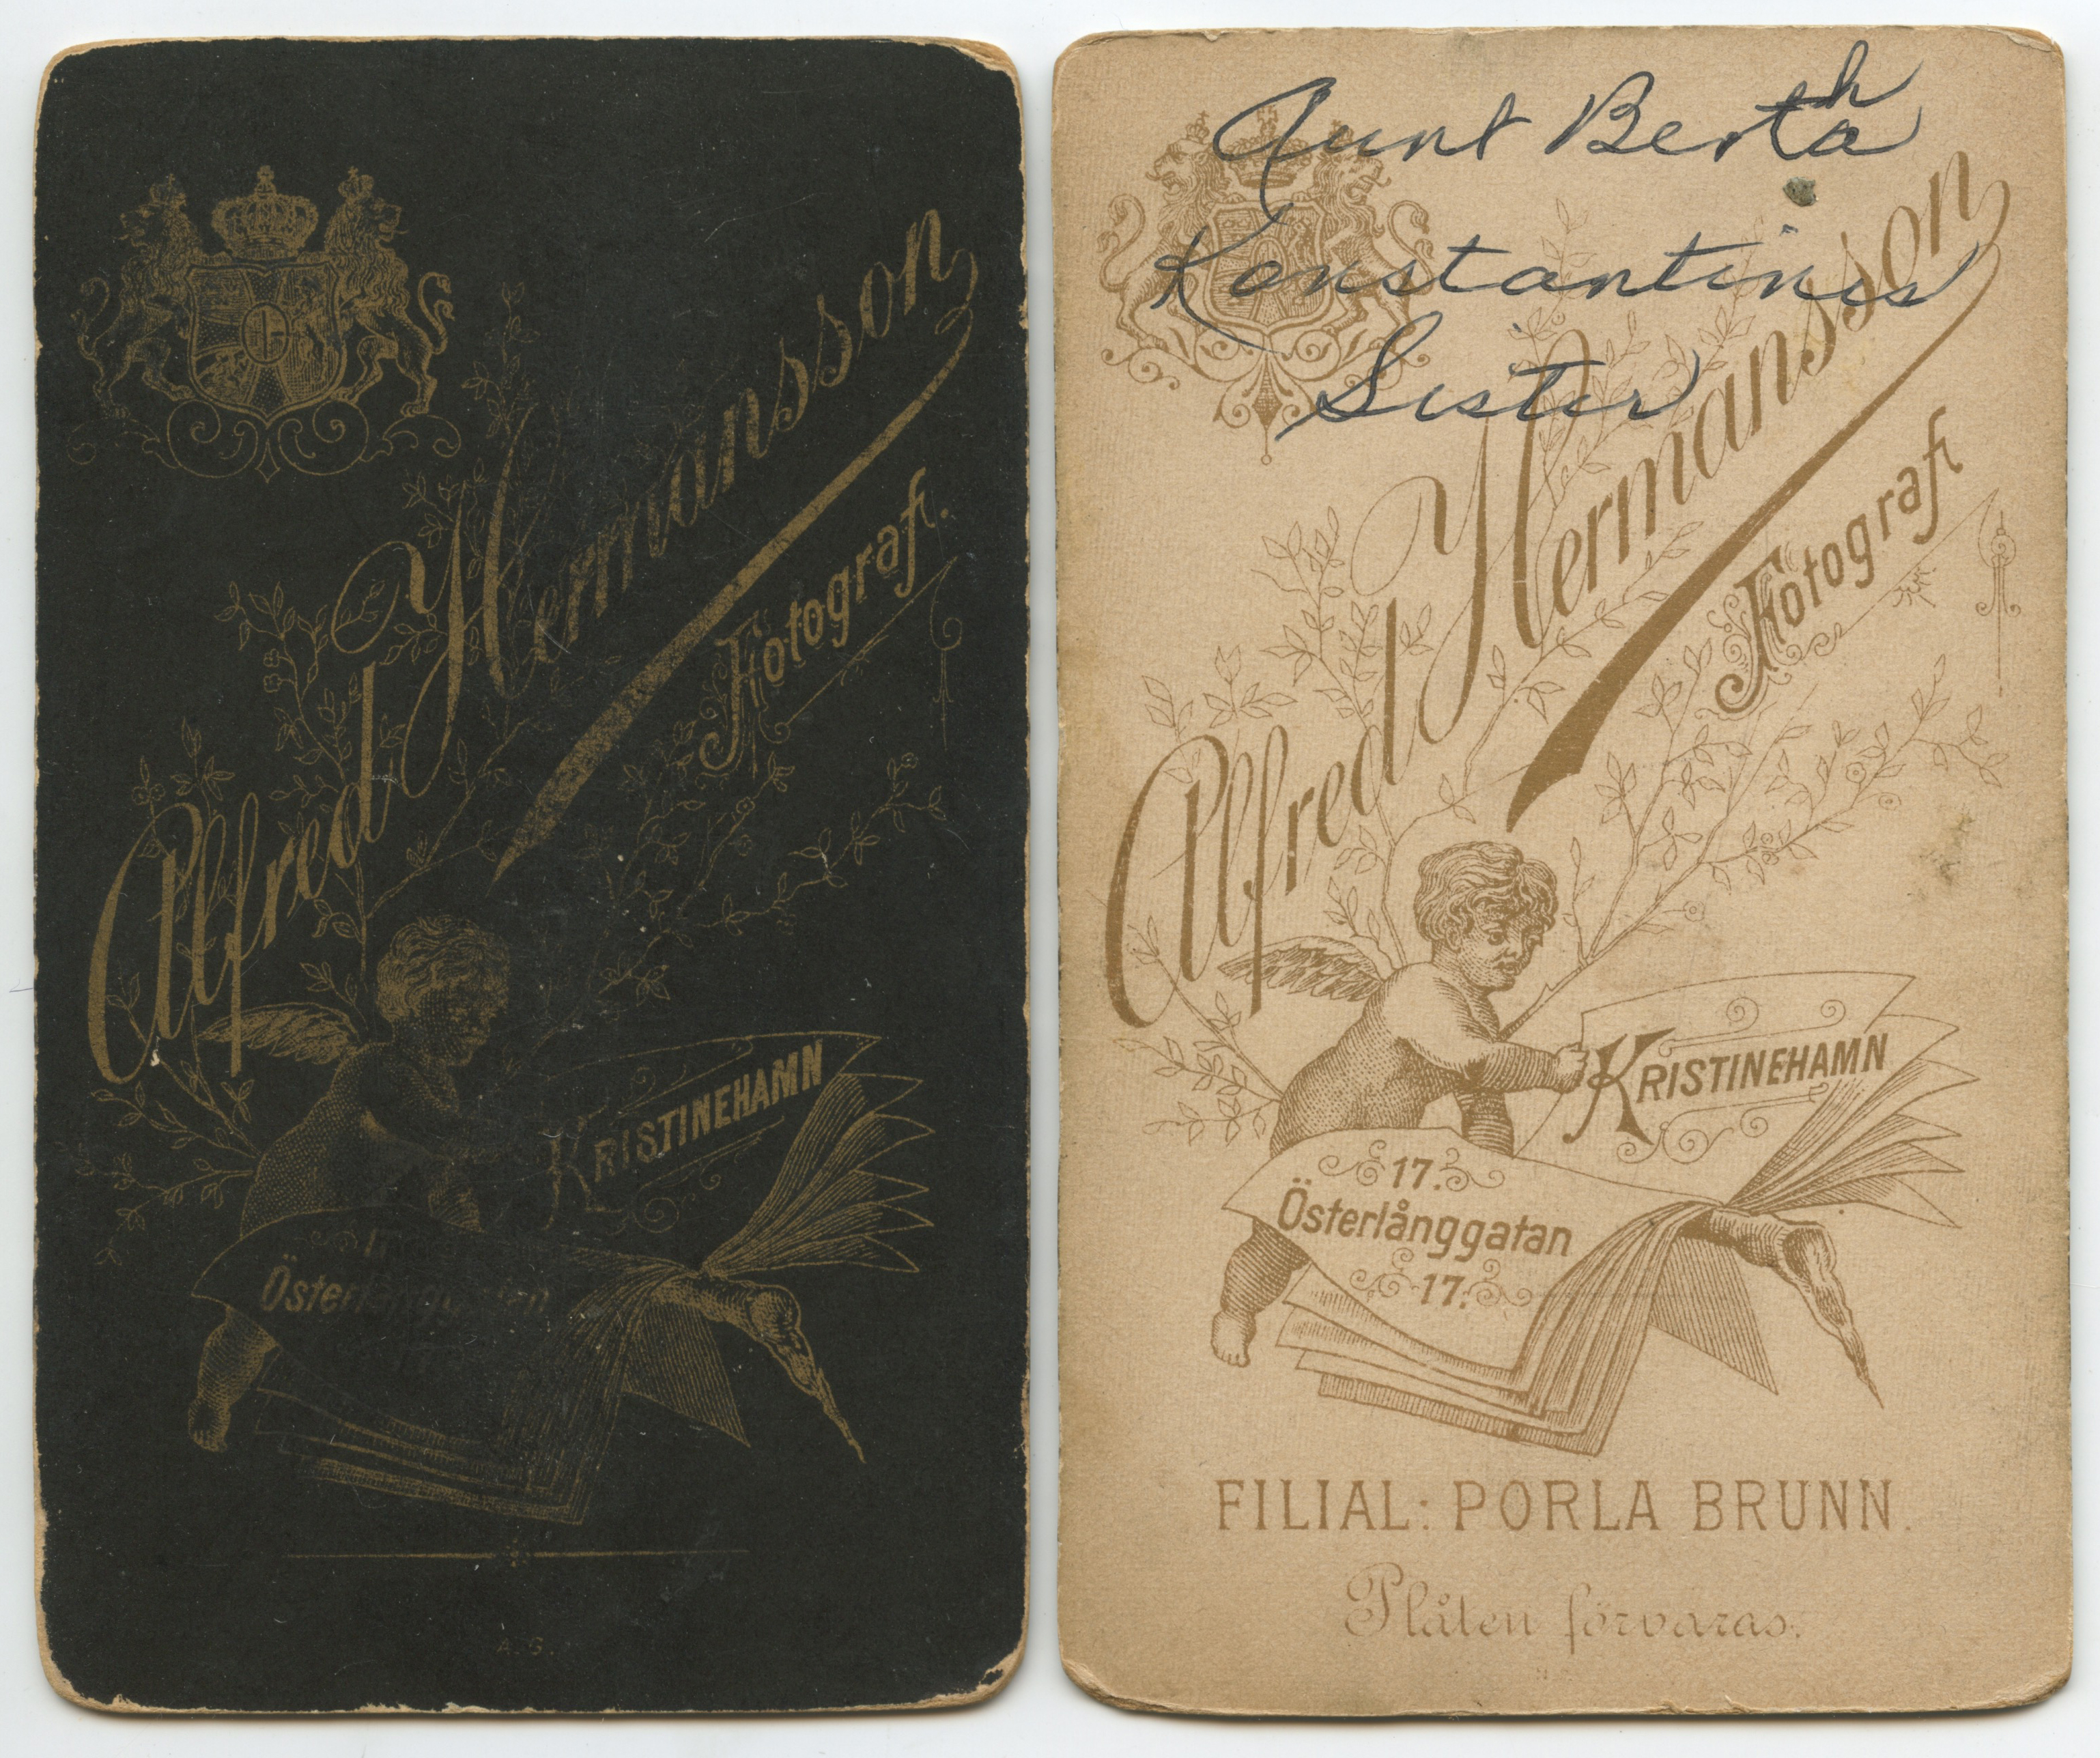 Alfred Hermansson
Fotografi.
KRISTINEHAMN
Österlånggatan
A. G.
Aunt Bertha
Konstantins
Sister
Alfred Hermansson
Fotografi
KRISTINEHAMN
17.
Österlånggatan
17.
FILIAL: PORLA BRUNN.
Plåten förvaras.